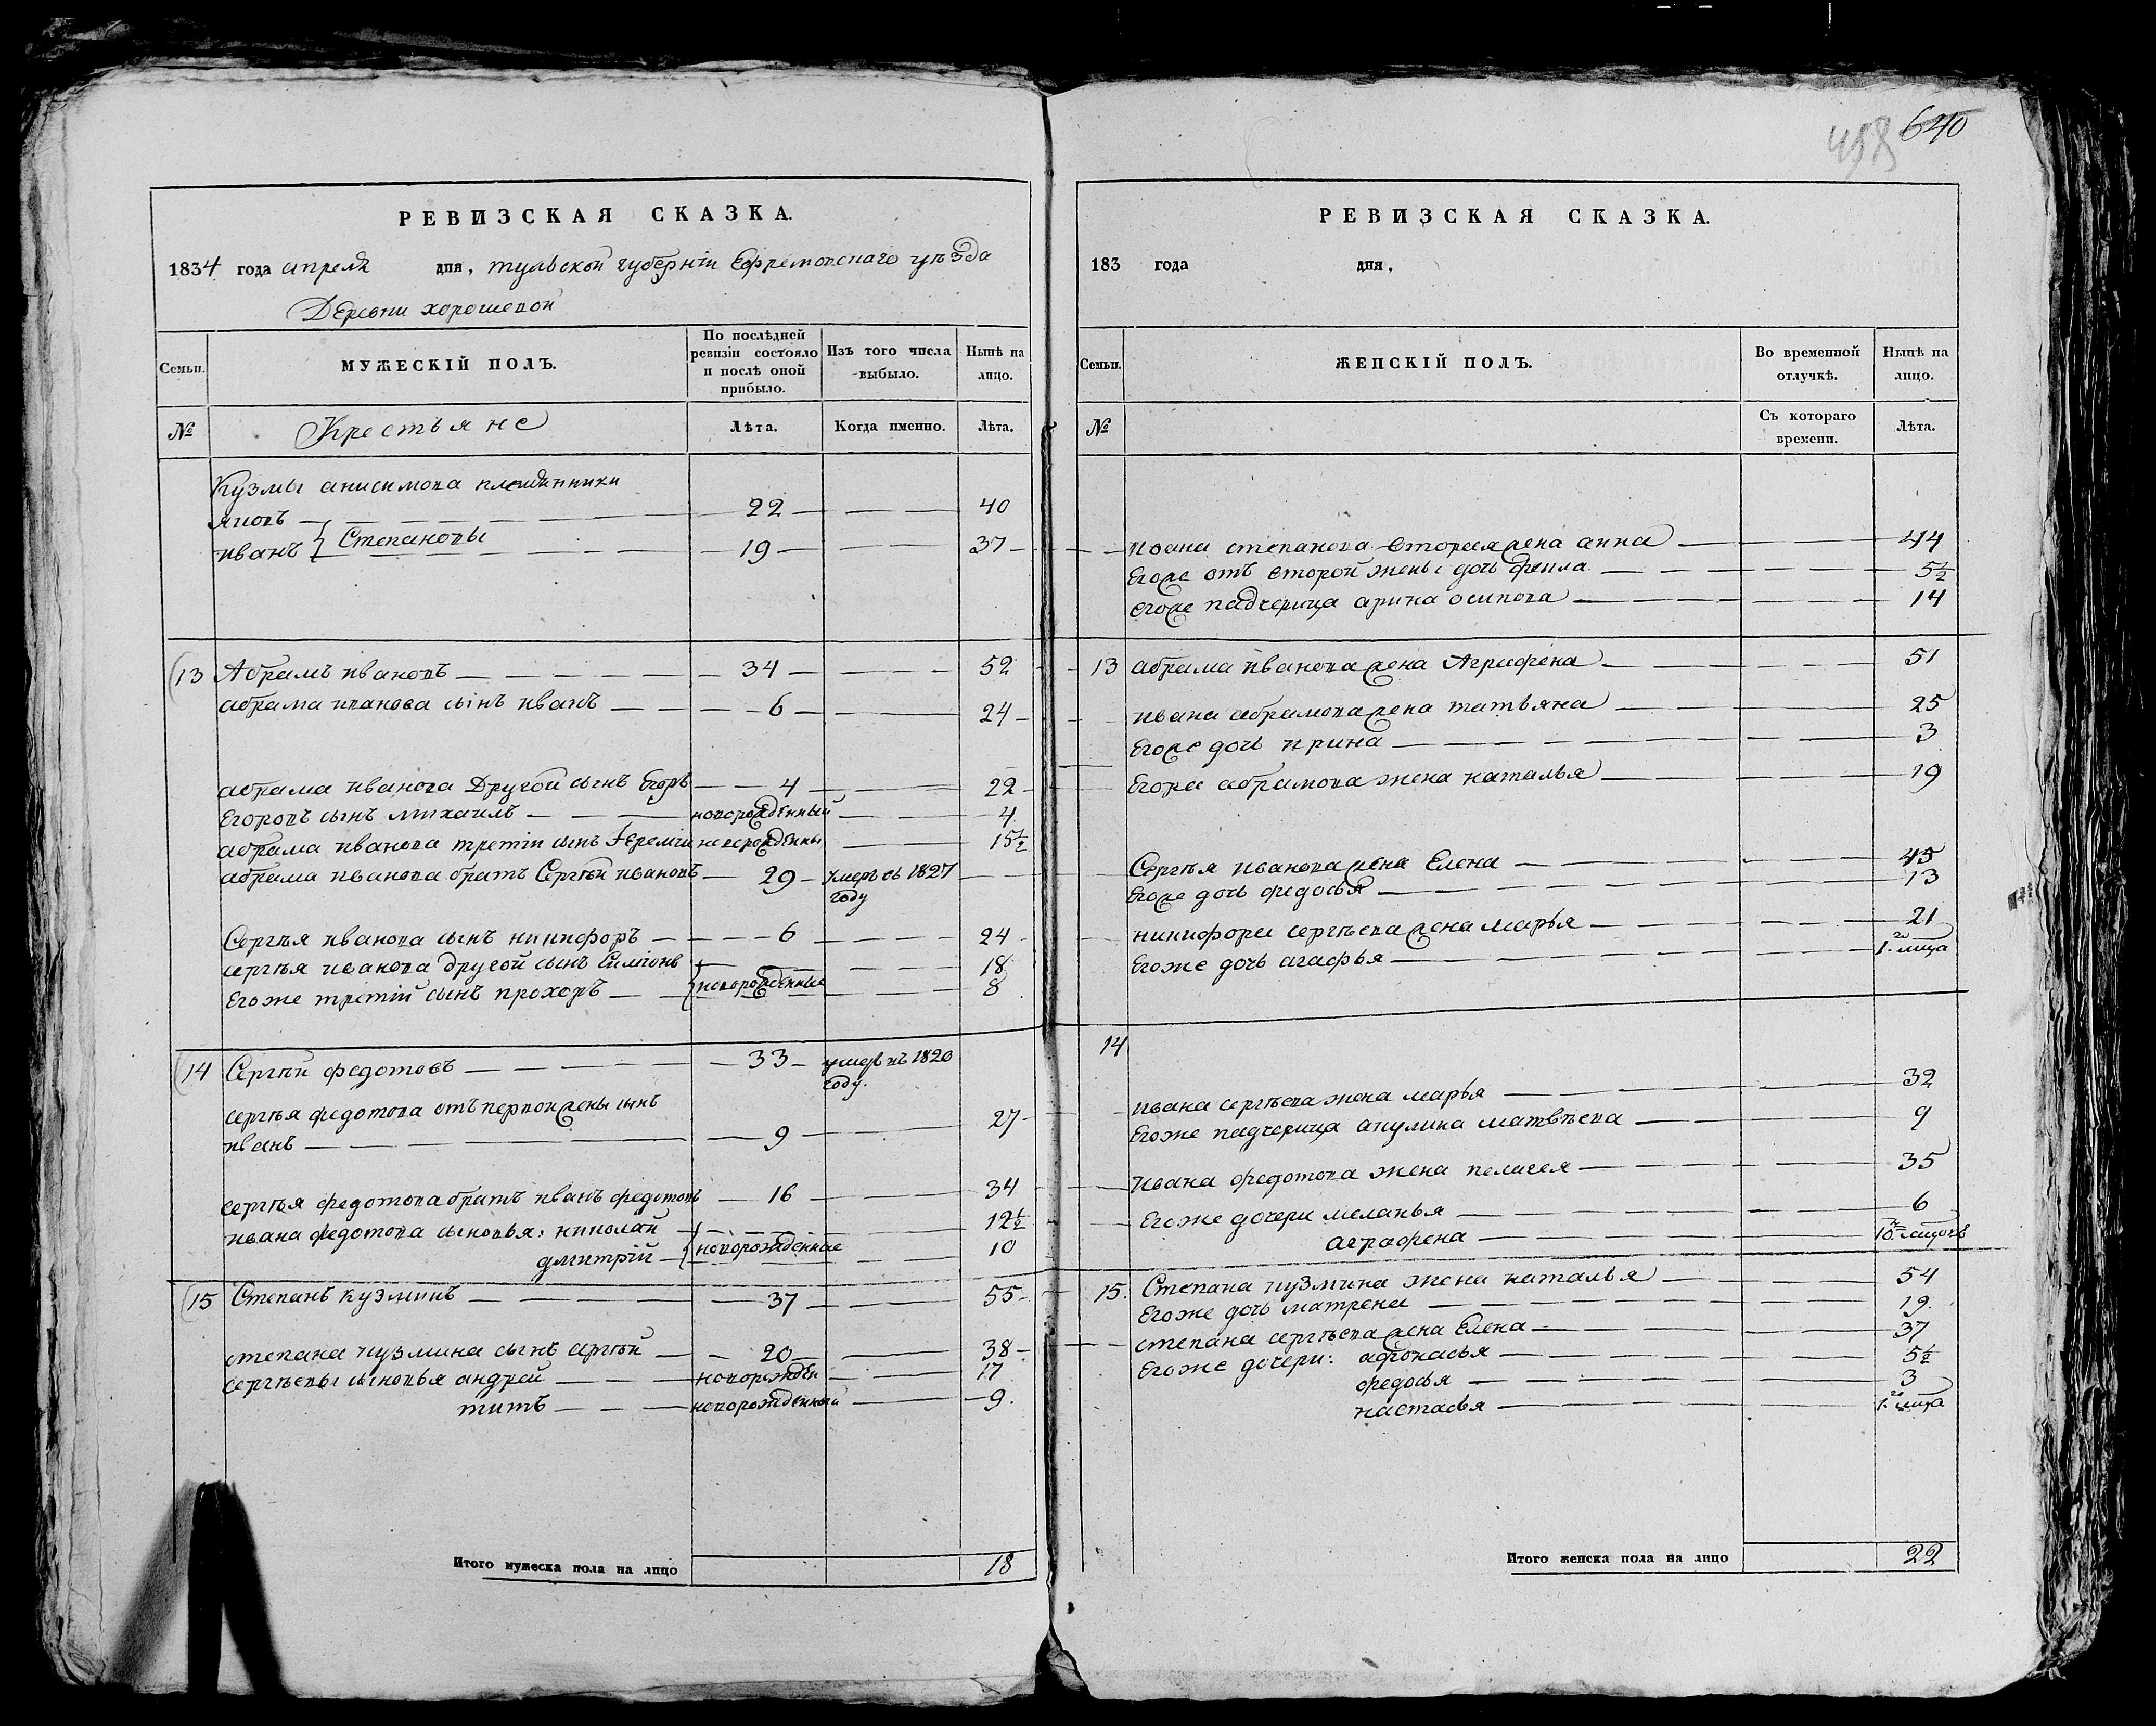 РЕВИЗСКАЯ СКАЗКА.
1834 года апреля дня, тульской губерніи Ефремовскаго уѣзда
Деревни хорошевой
Семьи. МУЖЕСКІЙ ПОЛЪ. По послѣдней ревизіи состояло и послѣ оной прибыло. Изъ того числа выбыло. Нынѣ на лицо.
№ Крестьяне Лѣта. Когда именно. Лѣта.
Кузмы анисимова племянники
яковъ 22 40
иванъ } Степановы 19 37
13 Абрамъ ивановъ 34 52
абрама иванова сынъ иванъ 6 24
абрама иванова Другой сынъ Егоръ 4 22
Егоровъ сынъ михаилъ новорожденный 4
абрама иванова третіи сынъ Ереміи новорожденны 15½
абрама иванова братъ Сергѣй ивановъ 29 умеръ въ 1827 году
Сергѣя иванова сынъ никифоръ 6 24
сергѣя иванова другой сынъ Симіонъ 18
Егоже третій сынъ прохоръ } новорожденные 8
14 Сергѣй федотовъ 33 умеръ въ 1820 году.
сергѣя федотова отъ первой жены сынъ
иванъ 9 27
сергѣя федотова братъ иванъ федотовъ 16 34
ивана федотова сыновья: николай 12½
дмитрій } новорожденные 10
15 Степанъ кузминъ 37 55
степана кузмина сынъ сергѣй 20 38
сергѣевы сыновья андрей новорожден 17
титъ новорожденный 9.
Итого мужеска пола на лицо 18
640
РЕВИЗСКАЯ СКАЗКА.
183 года дня,
Семьи. ЖЕНСКІЙ ПОЛЪ. Во временной отлучкѣ. Нынѣ на лицо.
№ Съ котораго времени. Лѣта.
ивана степанова вторая жена анна 44
Егоже отъ второй жены дочь фекла 5½
егоже падчерица арина осипова 14
13 абрама иванова жена Аграфена 51
ивана абрамова жена татьяна 25
Егоже дочь ирина 3
Егора абрамова жена наталья 19
Сергѣя иванова жена Елена 45
Егоже дочь федосья 13
никифора сергѣева жена марья 21
Егоже дочь агафья 1.го мица
14
ивана сергѣева жена марья 32
Егоже падчерица акулина матвѣева 9
ивана федотова жена пелагея 35
Егоже дочери меланья 6
аграфена 10.ти мицовъ
15. Степана кузмина жена наталья 54
Егоже дочь матрена 19.
степана сергѣева жена Елена 37
Егоже дочери: афонасья 5½
федосья 3
настасья 1.го мица
Итого женска пола на лицо 22